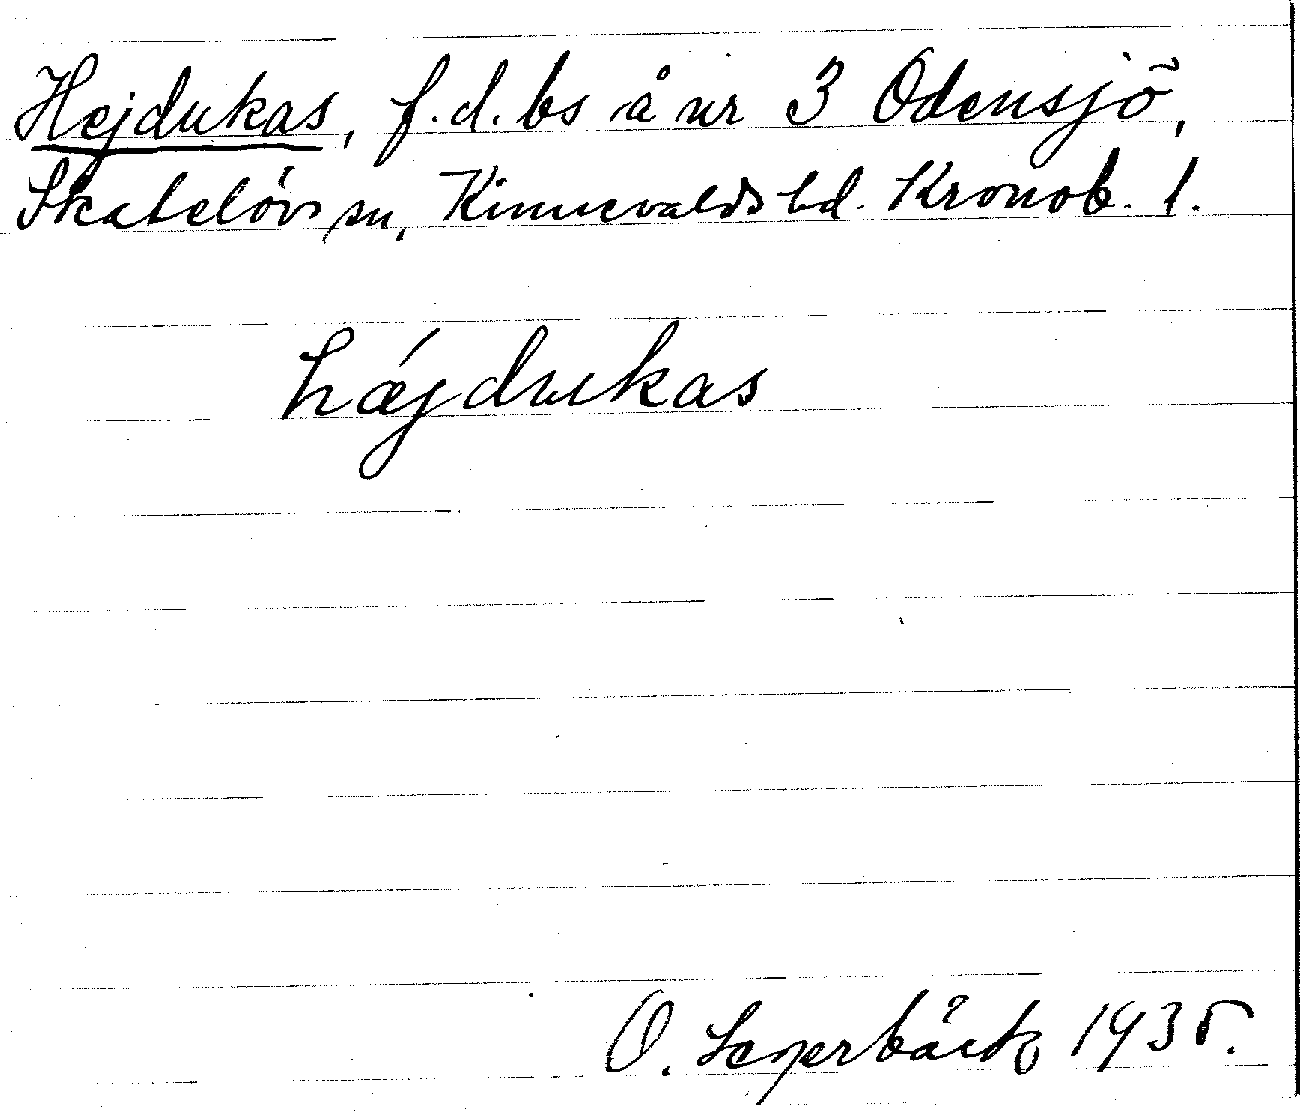 Hejdukas, f.d. bs å nr 3 Odensjö,
Skatelövs sn, Kinnevalds hd. Kronob. l.
hǽjdukas
O. 1935.